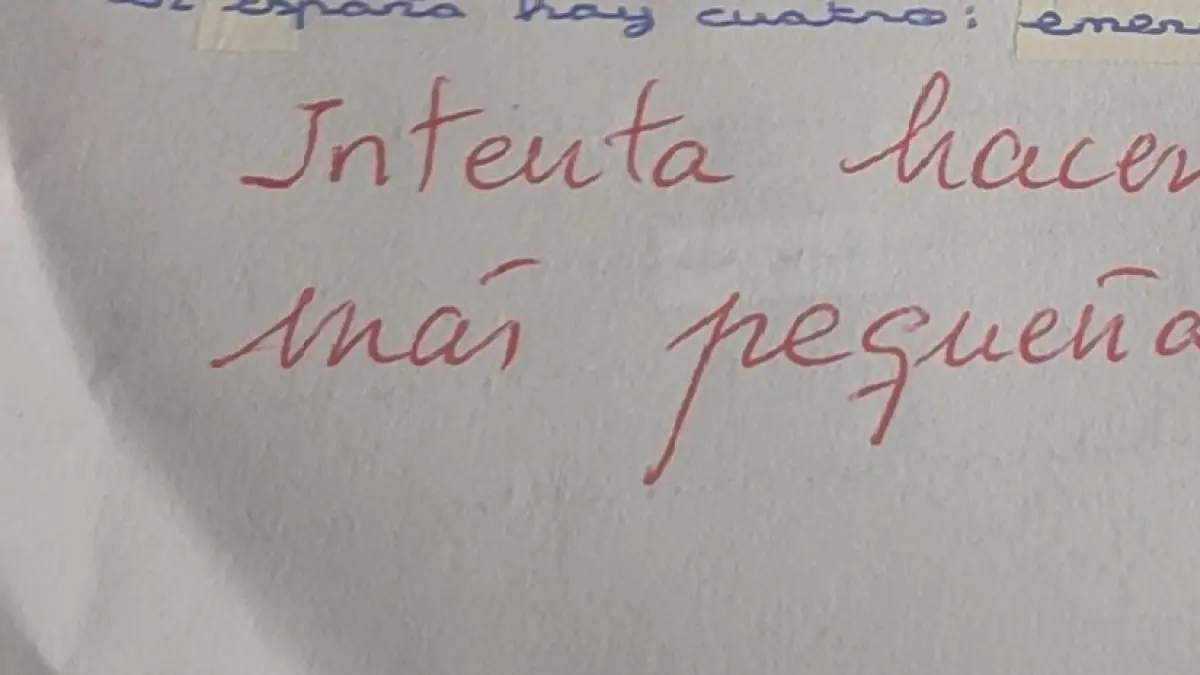 españa hay cuatro: ener
Intenta hacer
más pequeña